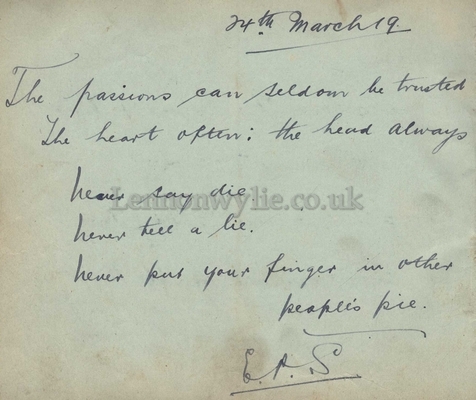 24th March 19.
The passions can seldom be trusted
The heart often: the head always
Never say die
Lennonwylie.co.uk
never tell a lie.
never put your finger in other
people's pie.
E.A.S.